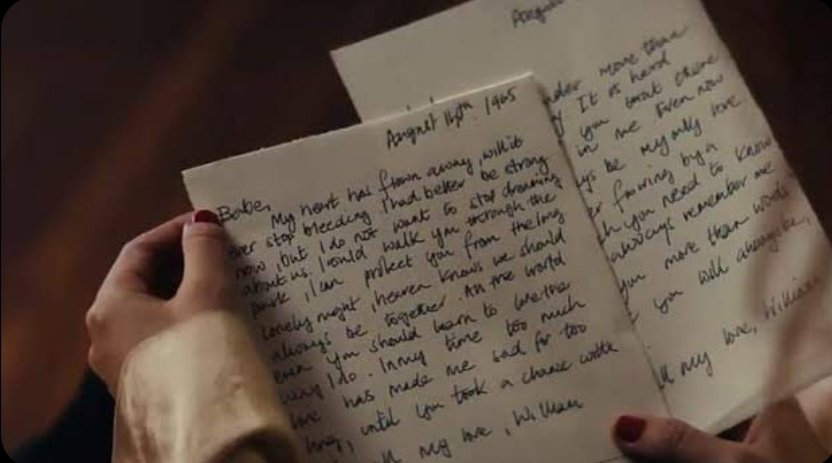 August 16th. 1965
Babe,
My heart has flown away, will it
ever stop bleeding. I had better be strong
now, but I do not want to stop dreaming
about us. I could walk you through the
park, I can protect you from the long
lonely night, heaven knows we should
always be together. All the world
over you should learn to love the
way I do. In my time too much
love has made me sad for too
long, until you took a chance with
my love, William
August
more than
It is hard
you built there
in me. Even now
be my only love
by a
you need to know
always remember me
you more than words
you will always be,
my love, William